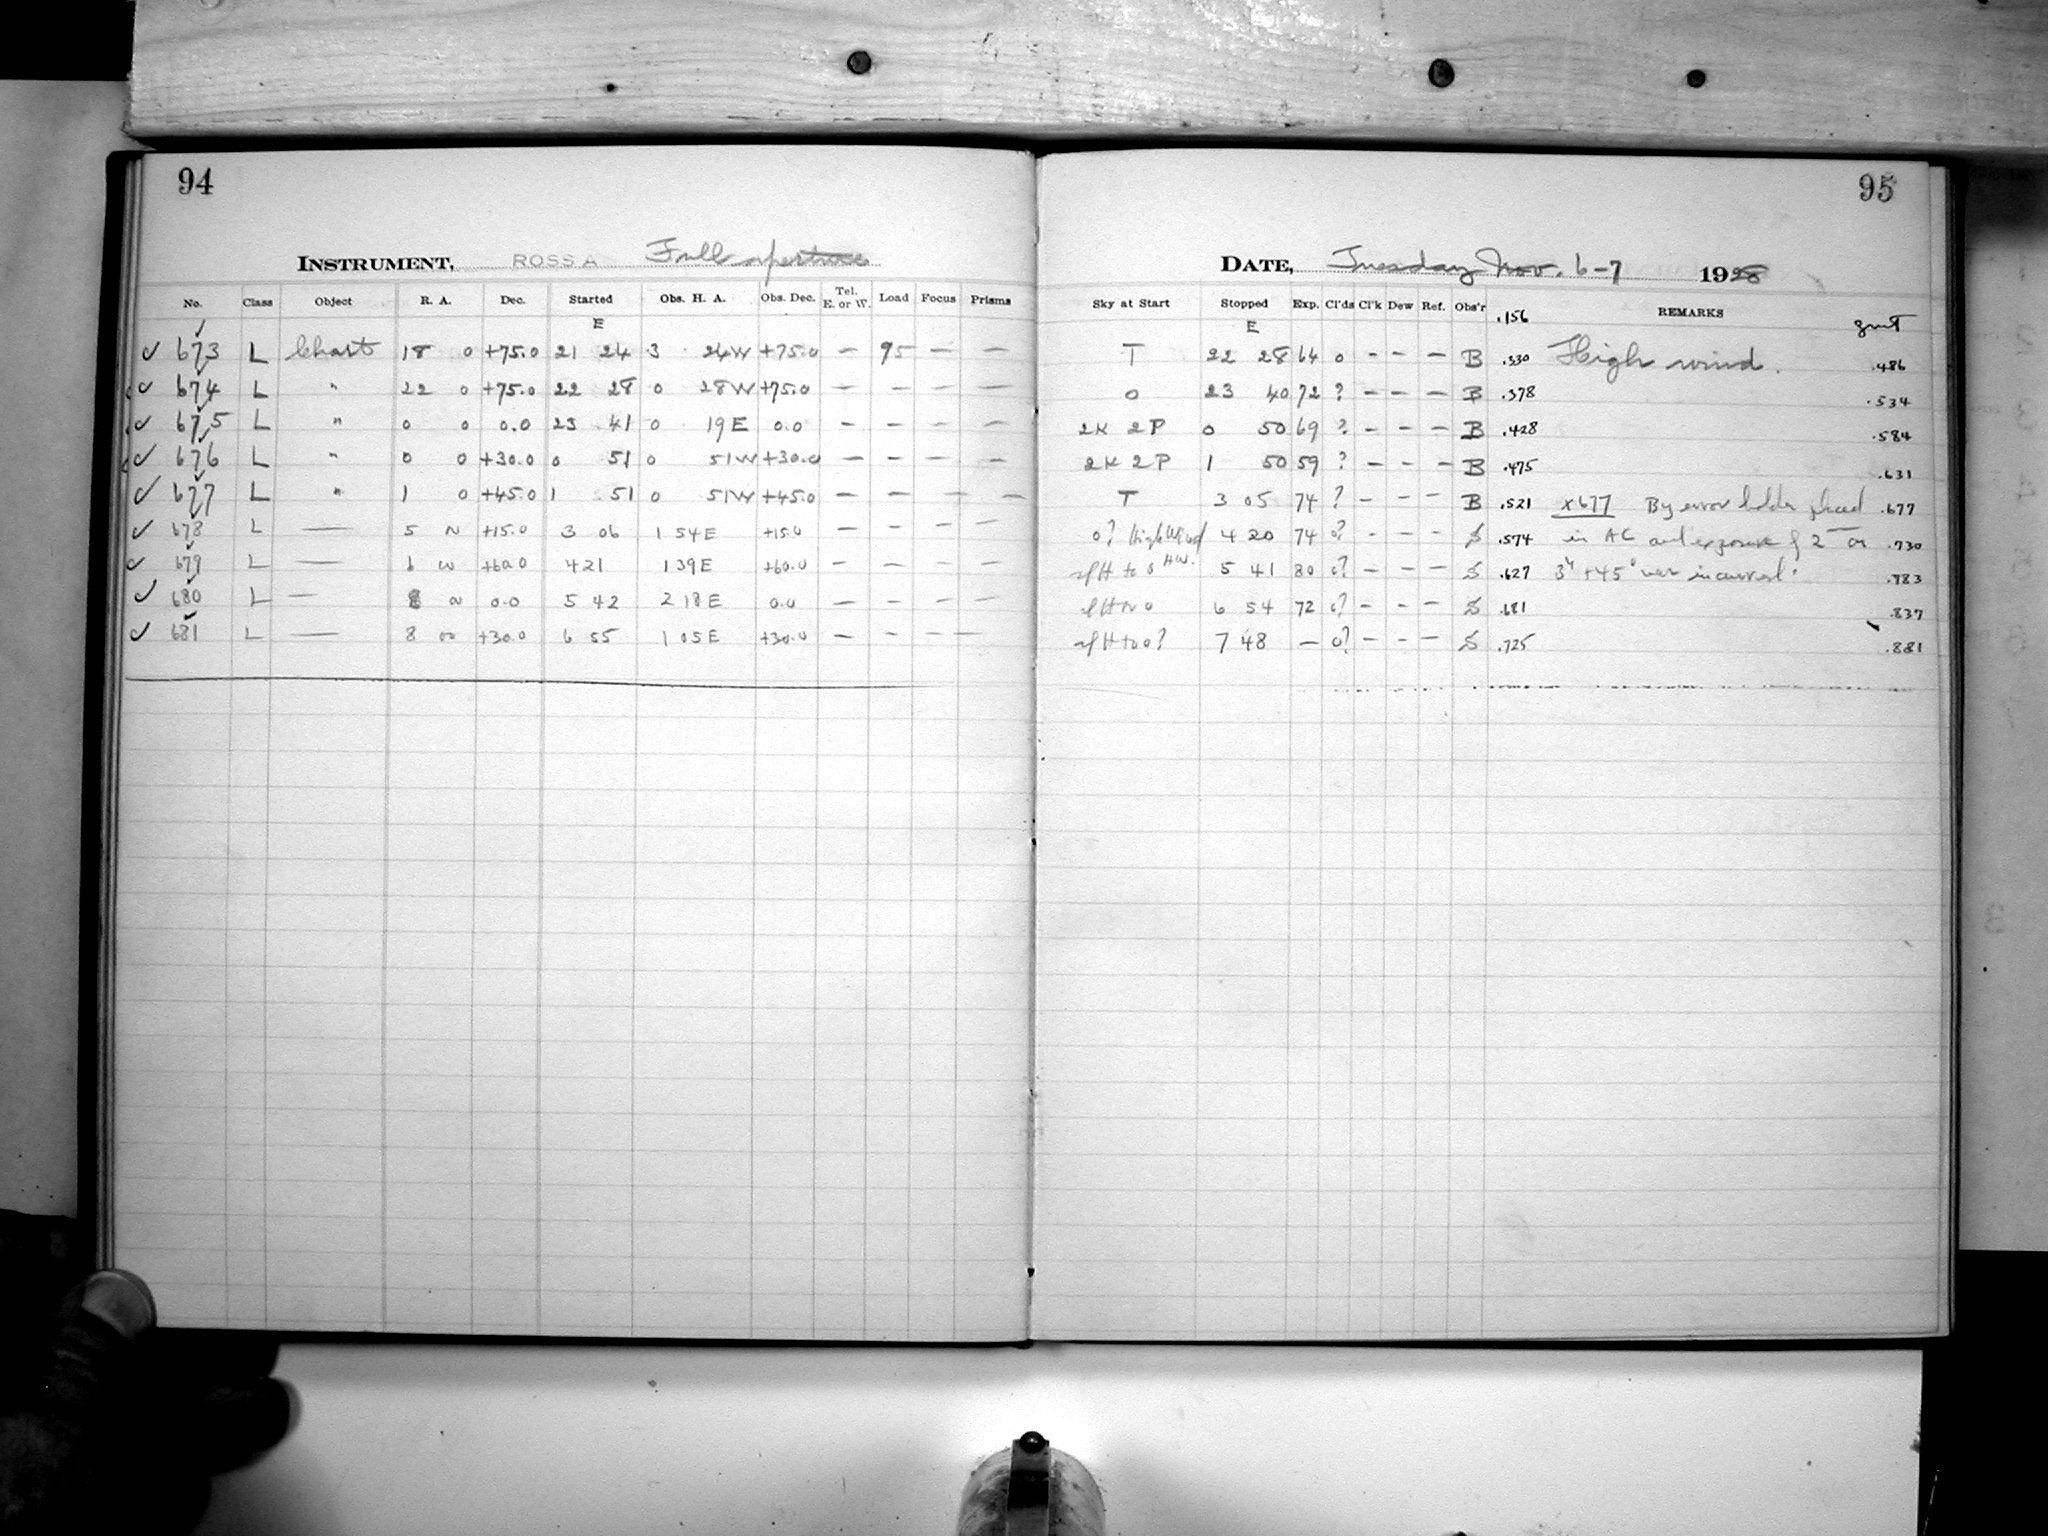 94
INSTRUMENT, ROSS A Full aperture
No. Class Object R. A. Dec. Started Obs. H. A. Obs. Dec. Tel. E. or W. Load Focus Prisms
E
✓ 673 L Chart 18 0 +75.0 21 24 3 24W +75.0 — 95 — —
✓ 674 L " 22 0 +75.0 22 28 0 28W +75.0 — — — —
✓ 675 L " 0 0 0.0 23 41 0 19E 0.0 — — — —
✓ 676 L " 0 0 +30.0 0 51 0 51W +30.0 — — — —
✓ 677 L " 1 0 +45.0 1 51 0 51W +45.0 — — — —
✓ 678 L — 5 +15.0 3 06 1 54E +15.0 — — — —
✓ 679 L — 6 +60.0 4 21 1 39E +60.0 — — — —
✓ 680 L — 8 0.0 5 42 2 18E 0.0 — — — —
✓ 681 L — 8 00 +30.0 6 55 1 05E +30.0 — — — —
95
DATE, Tuesday Nov. 6-7 1928
Sky at Start Stopped Exp. Cl'ds Cl'k Dew Ref. Obs'r .156 REMARKS gmt
E
T 22 28 64 0 — — — B .330 High wind. .486
0 23 40 72 ? — — — B .378 .534
2K 2P 0 50 69 ? — — — B .428 .584
2K 2P 1 50 59 ? — — — B .475 .631
T 3 05 74 ? — — — B .521 x677 By error holder placed .677
0? High Wind 4 20 74 0? — — — S .574 in AC and exposure of 2 on .730
H to 0 HW. 5 41 80 0? — — — S .627 3h +45° was incurred. .783
H to 0 6 54 72 0? — — — S .681 .837
H to 0? 7 48 — 0? — — — S .725 .881